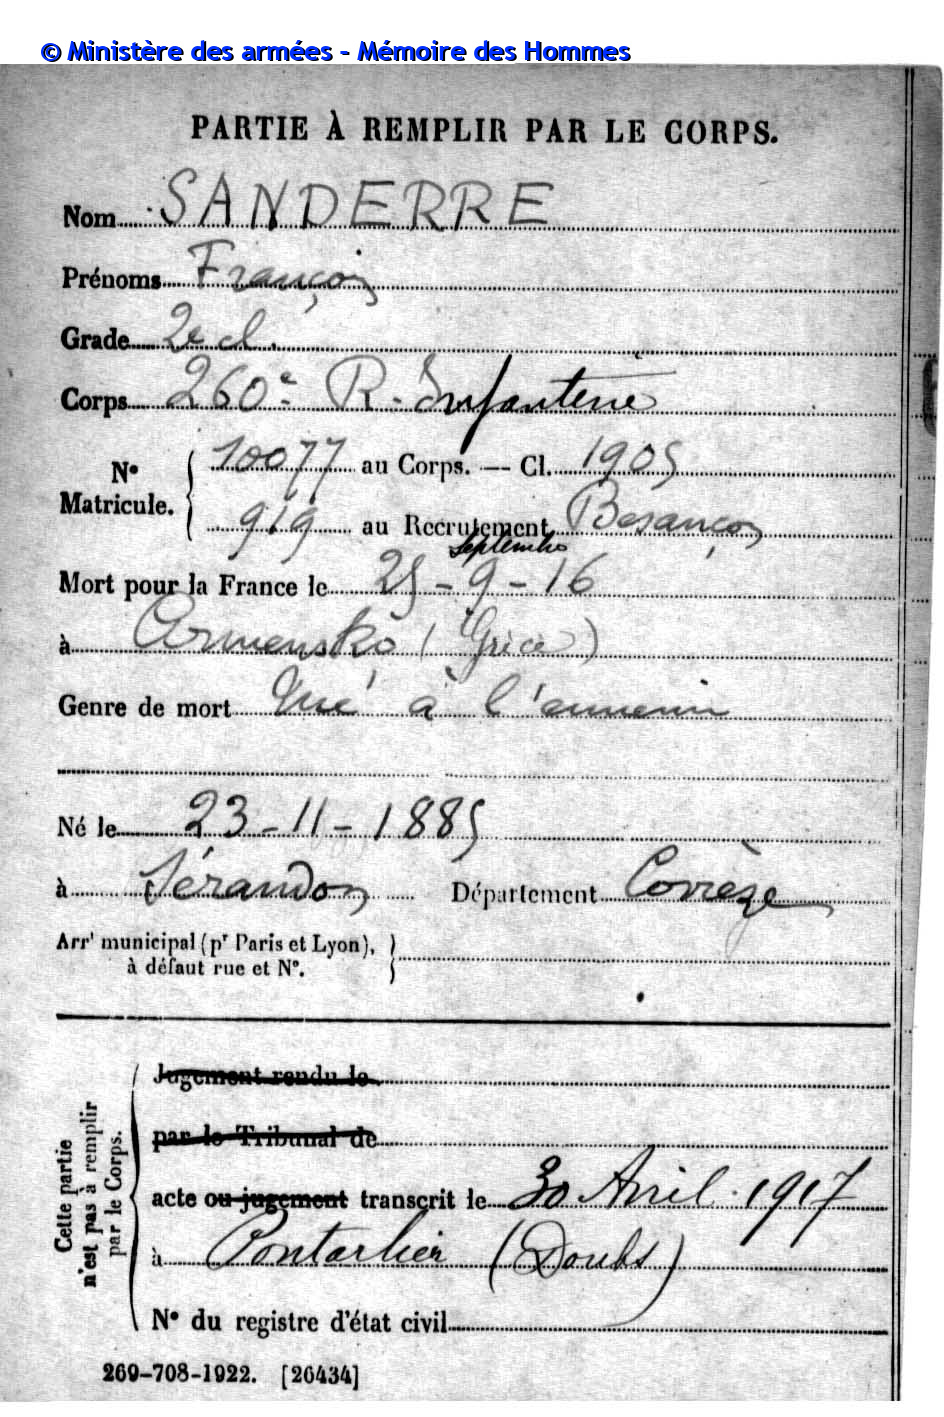 © Ministère des armées - Mémoire des Hommes
PARTIE À REMPLIR PAR LE CORPS.
Nom SANDERRE
Prénoms François
Grade 2e cl.
Corps 260e R. Infanterie
N° Matricule. { 10077 au Corps. — Cl. 1905
919 au Recrutement Besançon
Septembre
Mort pour la France le 25-9-16
à Armensko (Grèce)
Genre de mort Tué à l'ennemi
Né le 23-11-1885
à Sérandon Département Corrèze
Arrt municipal (pr Paris et Lyon),
à défaut rue et N°.
Cette partie n'est pas à remplir par le Corps.
Jugement rendu le
par le Tribunal de
acte ou jugement transcrit le 30 Avril 1917
à Pontarlier (Doubs)
N° du registre d'état civil
269-708-1922. [26434]